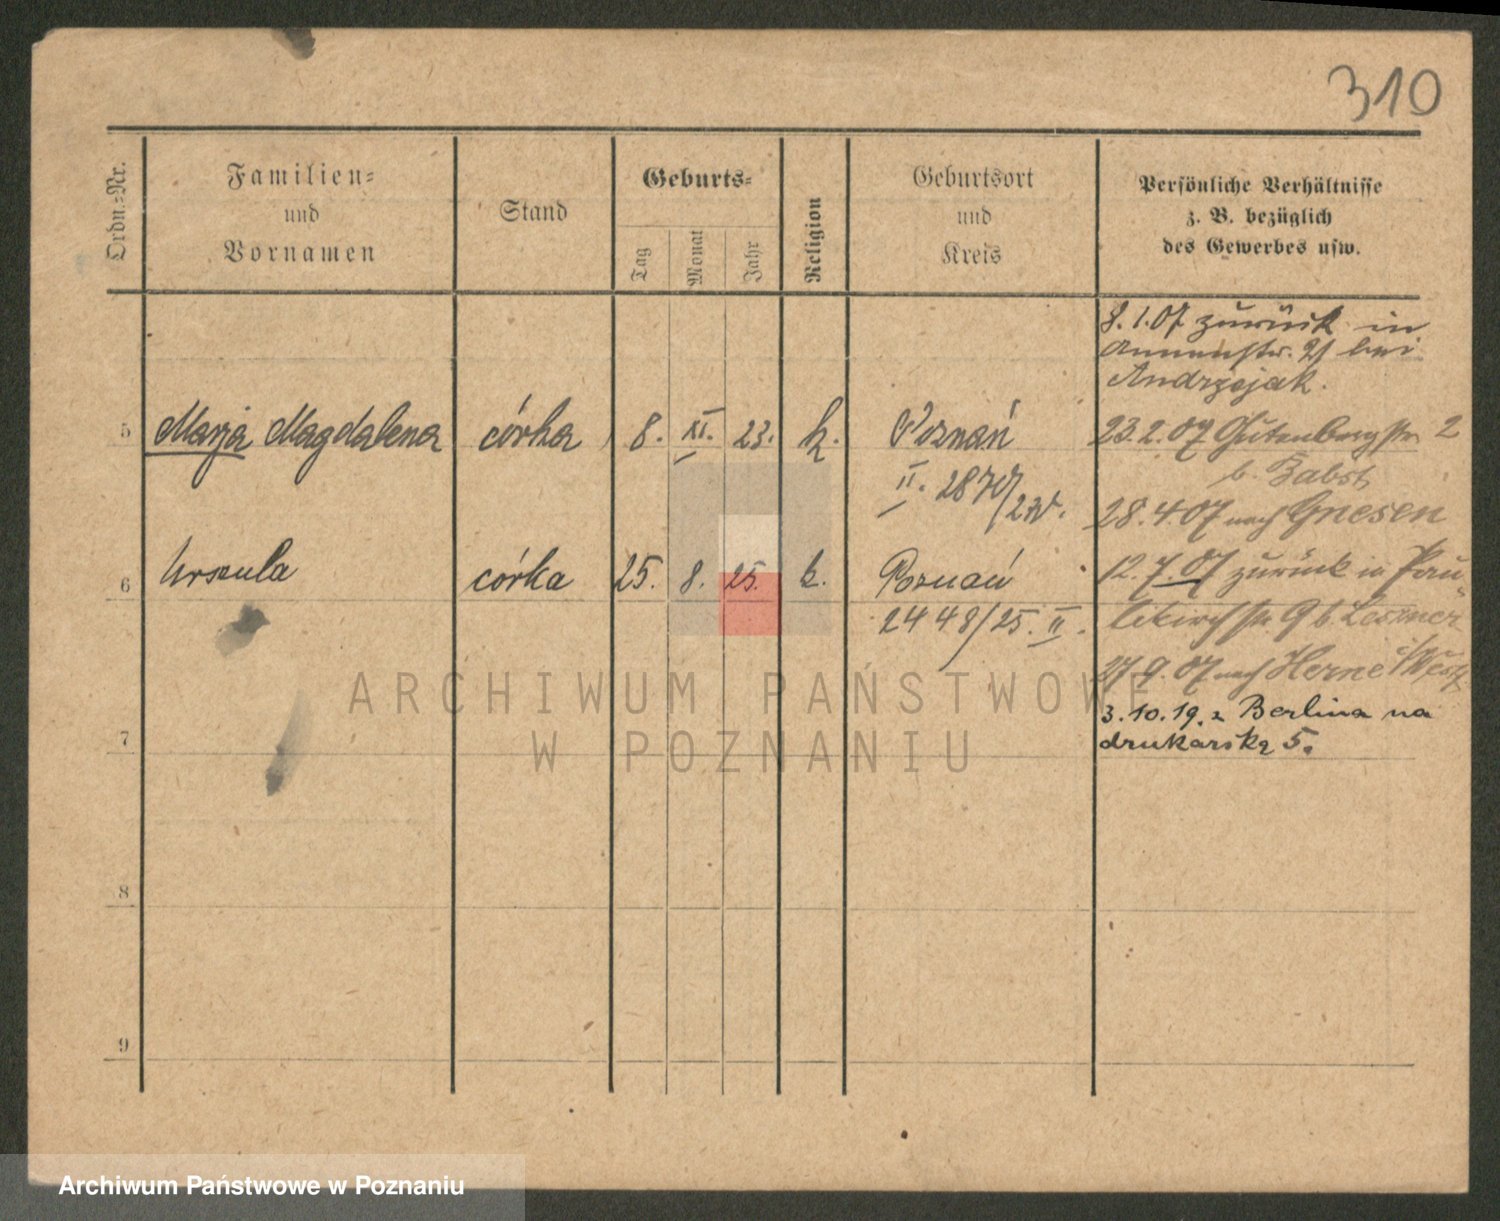 310
Ordn.-Nr.
Familien-
und
Vornamen
Stand
Geburts-
Tag
Monat
Jahr
Religion
Geburtsort
und
Kreis
Persönliche Verhältnisse
z. B. bezüglich
des Gewerbes usw.
8.1.07 zurück in
Annenstr. 21 bei
Andrzejak.
5 Marja Magdalena córka 8. XI. 23. k. Poznań
23.2.07 Gutenbergstr. 2
b. Zabst
II. 2870/23.
28.4.07 nach Gnesen
6 Urszula córka 25. 8. 25. k. Poznań
12.7.07 zurück in Pau-
2448/25. II.
likirchstr. 9 b.
27.9.07 nach Herne i/West
3.10.19. z Berlina na
drukarską 5.
7
8
9
ARCHIWUM PAŃSTWOWE
W POZNANIU
Archiwum Państwowe w Poznaniu